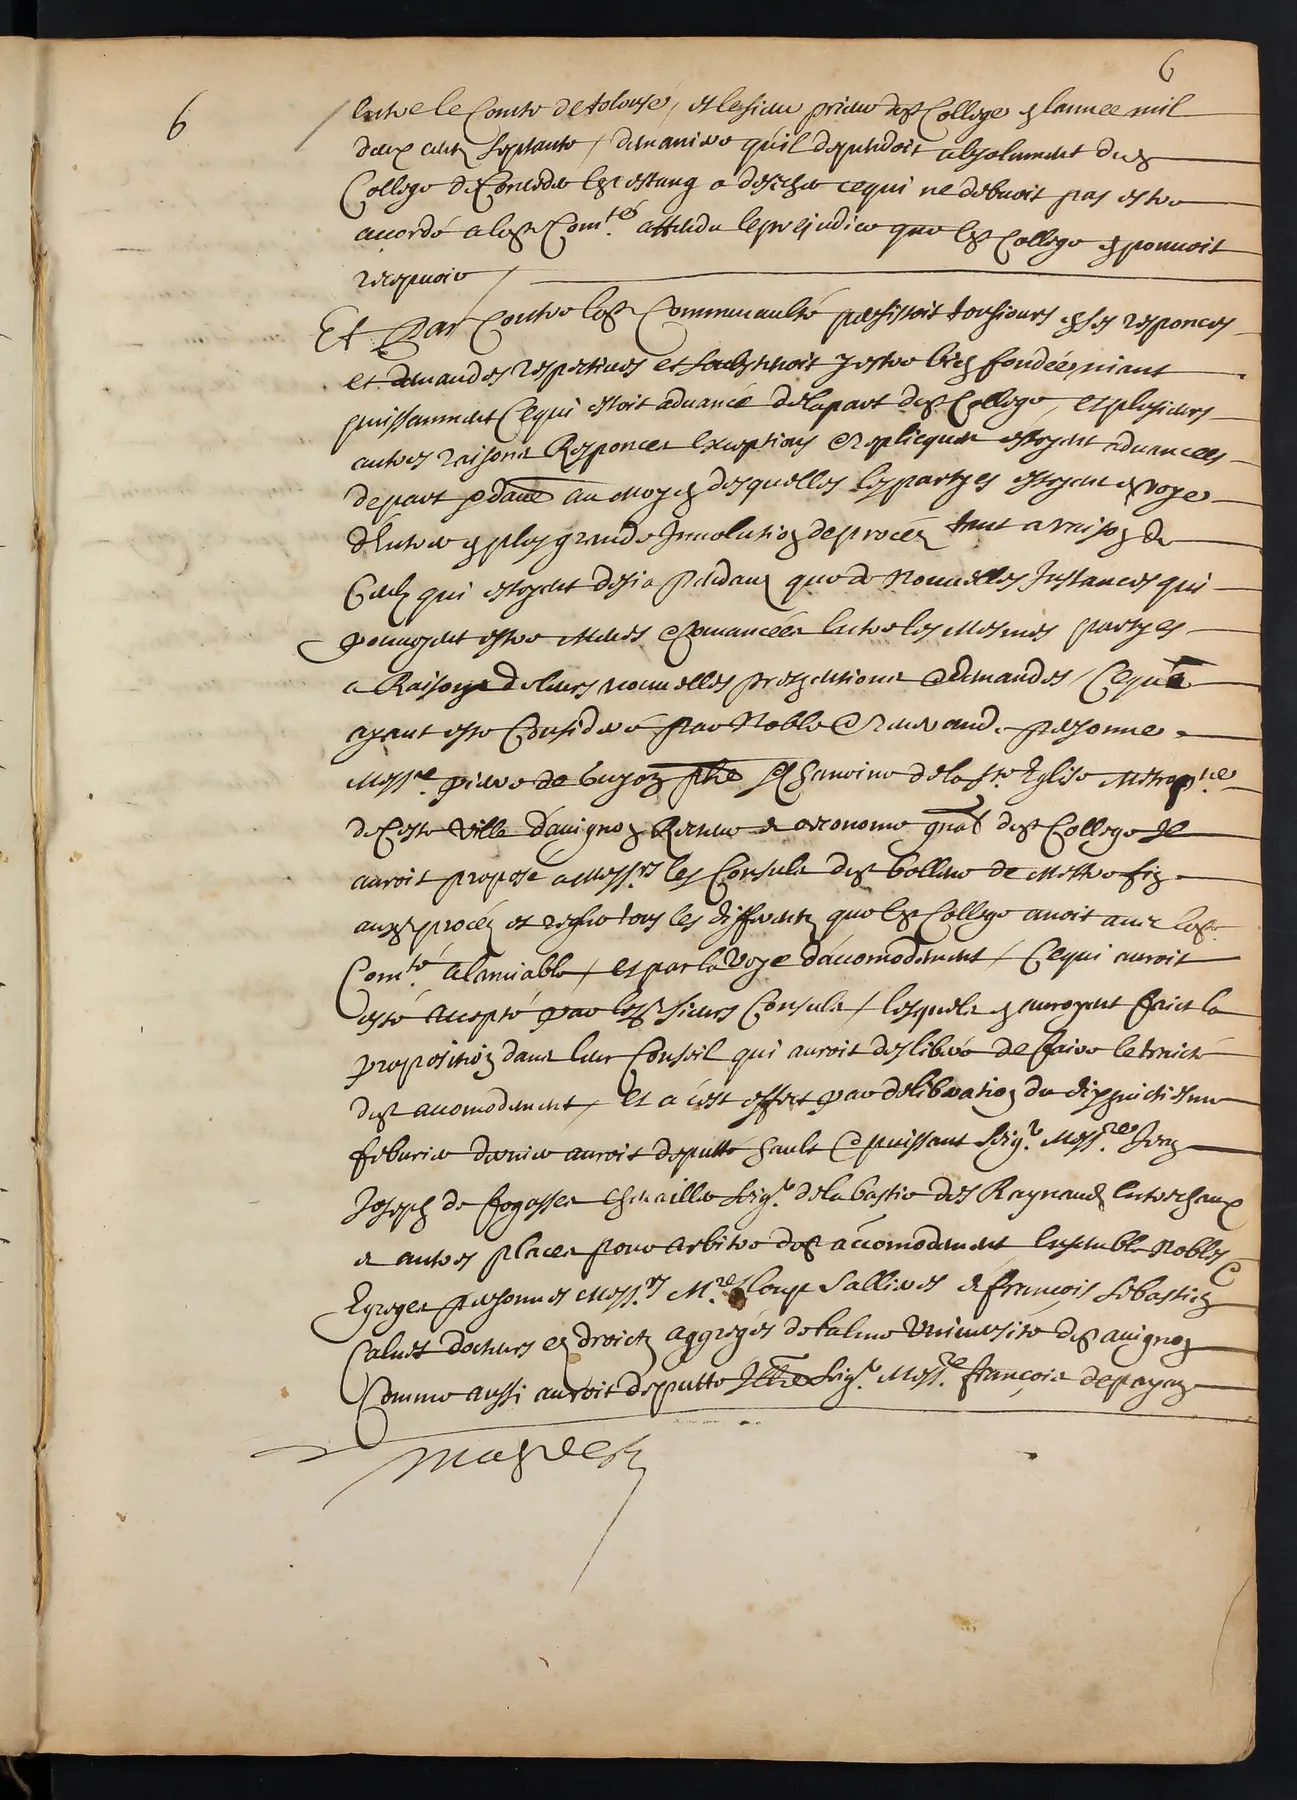 6
6
Entre le Comte de tolouse, et le sieur prieur dud College en lannee mil
deux cents septante / de maniere quil dependoit absolument dud
College de Conceder led estang a desecher ce qui ne debvoit pas estre
accordé a lad Com.té attendu le prejudice que led College en pouvoit
recepvoir /
Et Par contre lad Communaulté persistoit tousiours en ses responces
et demandes respectives et soubstenoit y estre bien fondée niant
puissamment Ce qui estoit advancé de la part dud College, et plusieurs
autres raisons Responces exceptions et replicques estoyent advancees
de part et dautre au moyen desquelles les partyes estoyent en voye
dEntrer en plus grande Involution de procés tant a raison de
Ceulx qui estoyent desia pendans que de Nouvelles Instances qui
pouvoyent estre meues et commancées Entre les Mesmes partyes
a Raison de leurs nouvelles pretentions et demandes / Ce que
ayant esté Consideré par Noble et Reverande personne
Mess.re pierre de Guyon pbre et Chanoine de la s.te Eglise Metrop.ne
de Ceste Ville d'avignon Recteur et œconome gnal dud College Il
auroit proposé a Mess.rs les Consuls dud bollene de Mettre fin
ausd procés et regler tous les differents que led College avoit avec lad
Com.té a lamiable / et par la voye d'accomodement / Ce qui auroit
esté accepté par lesd sieurs Consuls / lesquels en auroyent faict la
proposition dans leur Conseil qui auroit deslibéré de faire le traicté
dud accomodement / Et a cest effect par deliberation du dixhuictiesme
febvrier dernier auroit deputté hault et puissant seig.r Mess.re Jean
Joseph de fogasses chevaillier seig.r de la bastie des Raynauds Entrechaux
et autres places pour arbitre dud accomodement Ensemble Nobles et
Egreges personnes Mess.rs M.res loup Sallieres et françois sebastien
Calvet docteurs es droicts aggregés de l'alme Université dud avignon
Comme aussi auroit deputté Illre seig.r Mess.re françois de payan